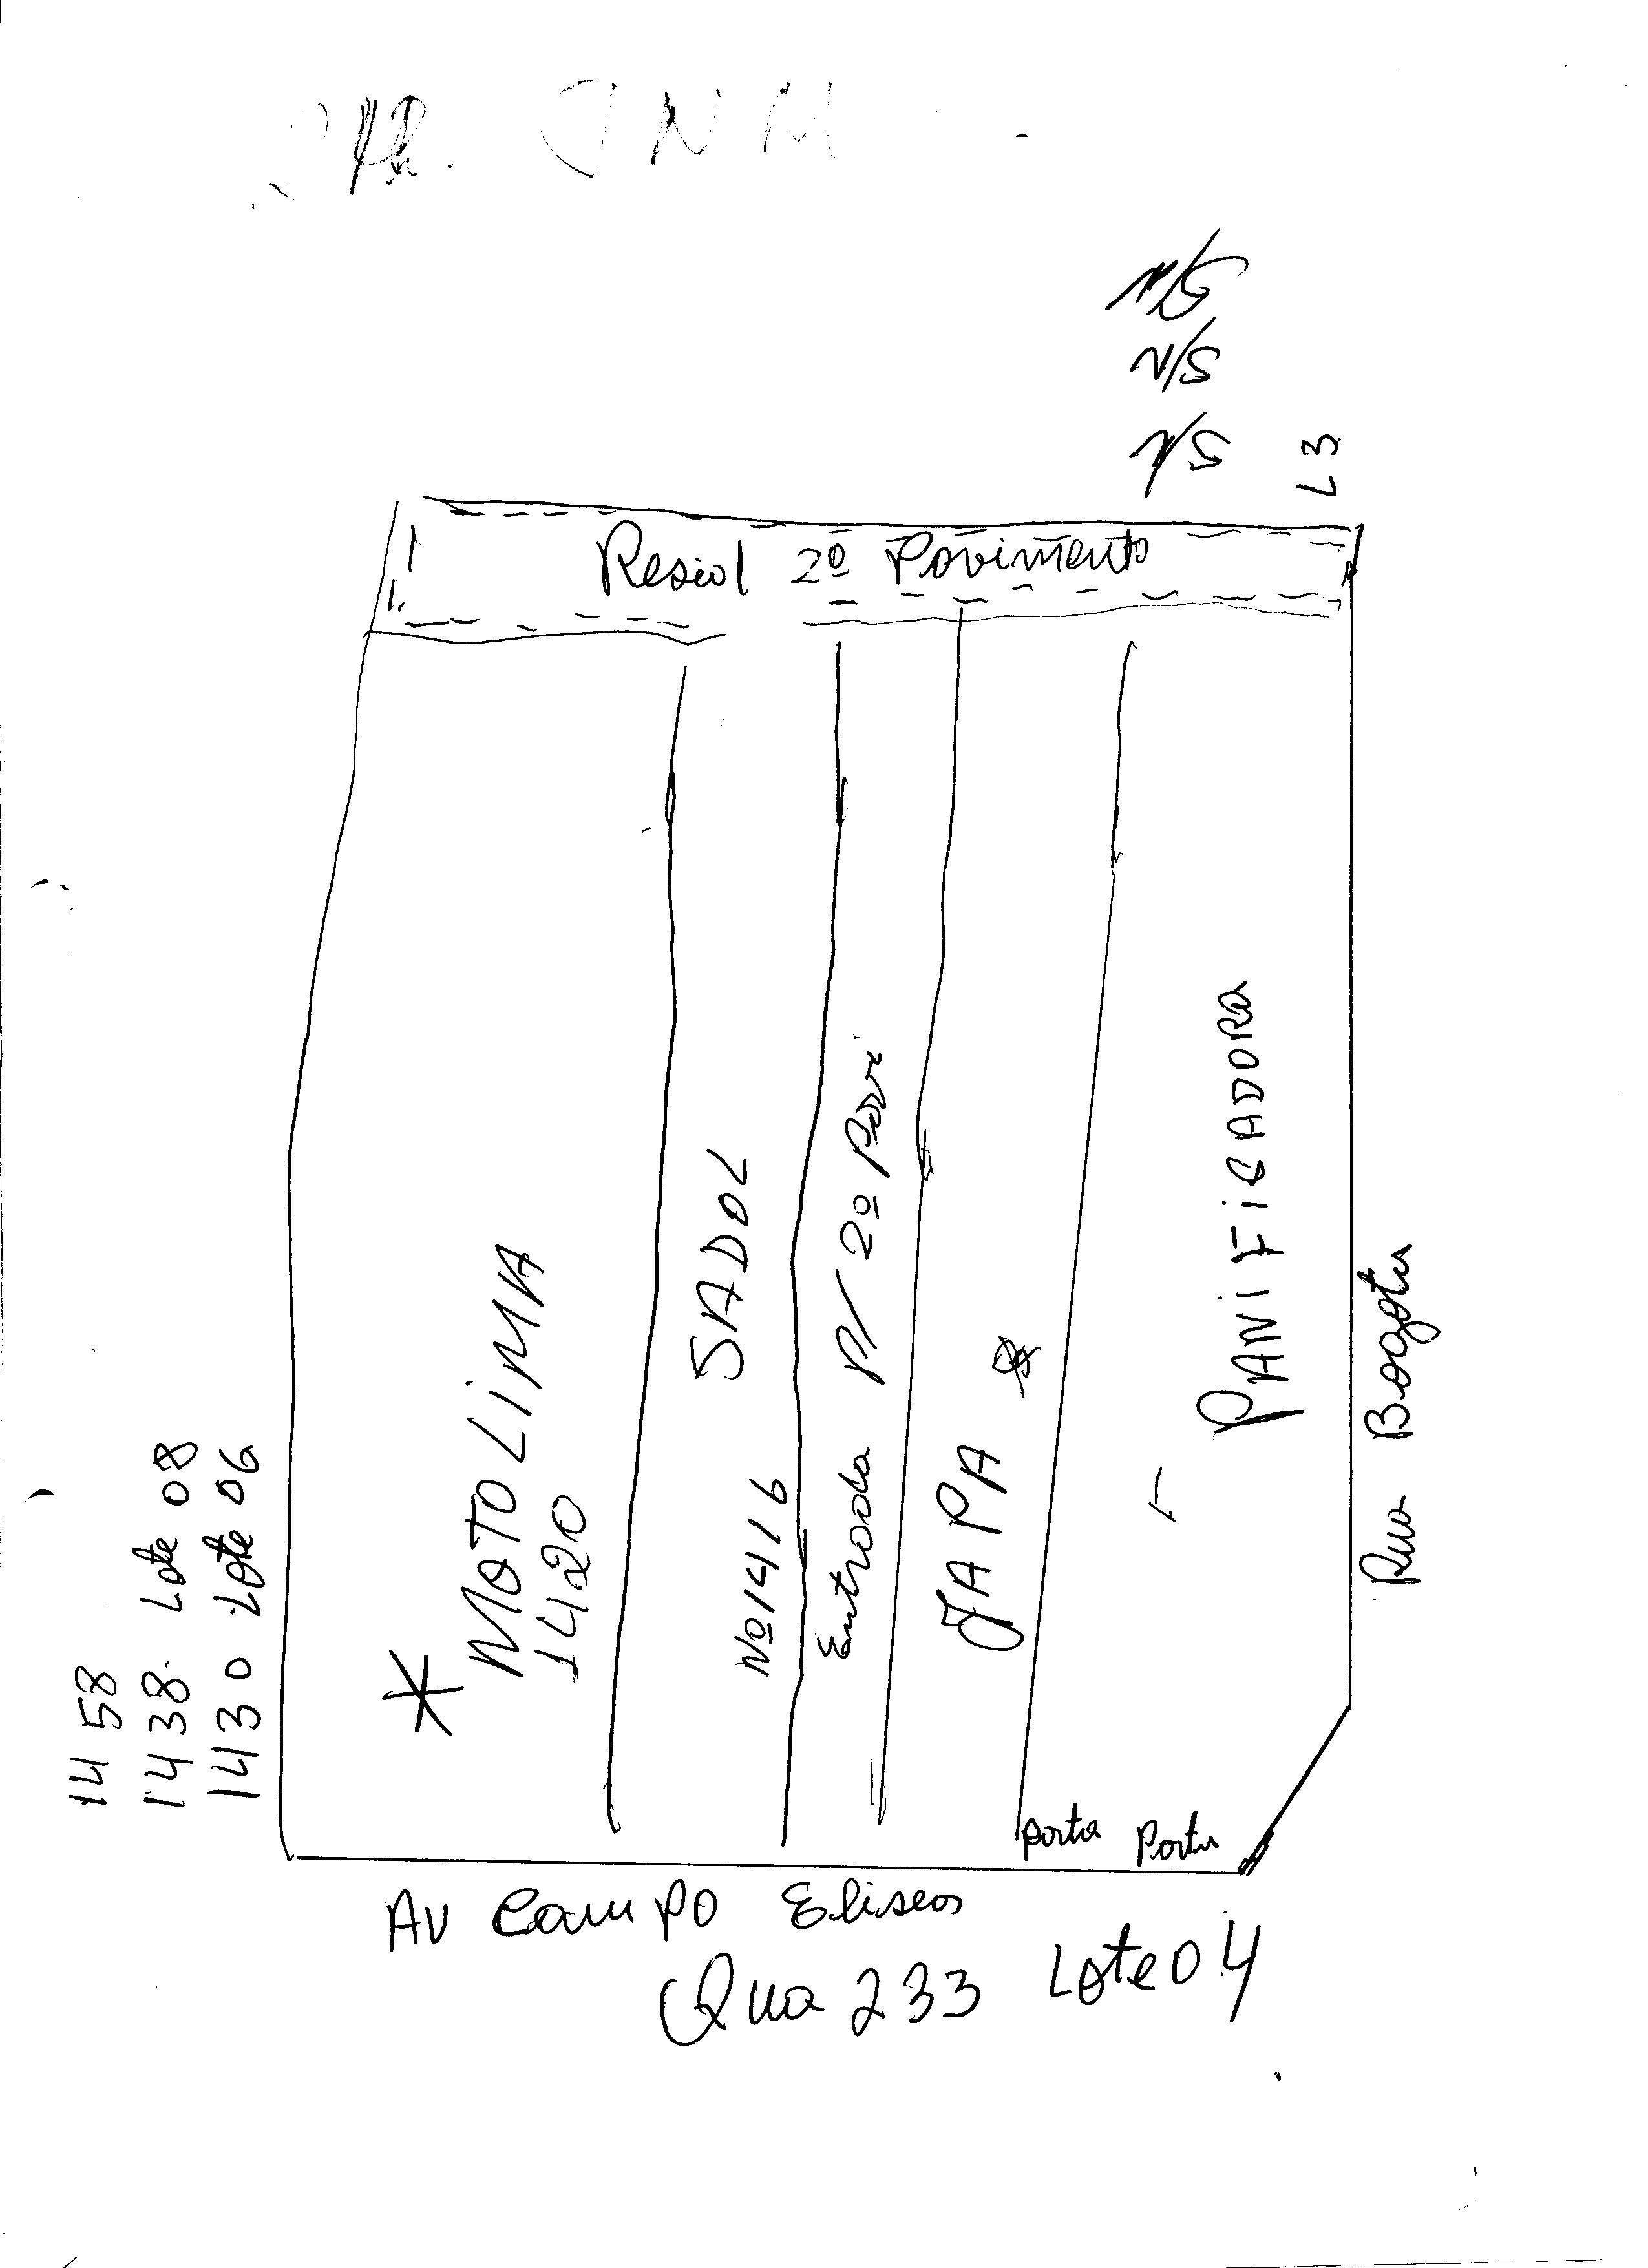 N/S
N/S
N/S
L3
Resid 2º Pavimento
1458
1438 Lote 08
1430 Lote 06
MOTO LIMA
1420
SADOL
Nº 1416
Entrada P/ 2º Pavi
JAPA
PANIFICADORA
Rua Bogota
Porta Porta
AV Campo Eliseos
Qua 233 Lote 04